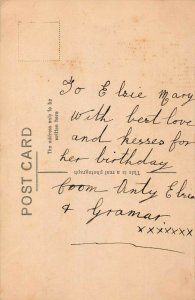 POST CARD
The address only to be written here
This is a real photograph
To Elsie Mary
With best love
and kesses for
her birthday
from Anty Elsie
& Gramar.
xxxxxxx